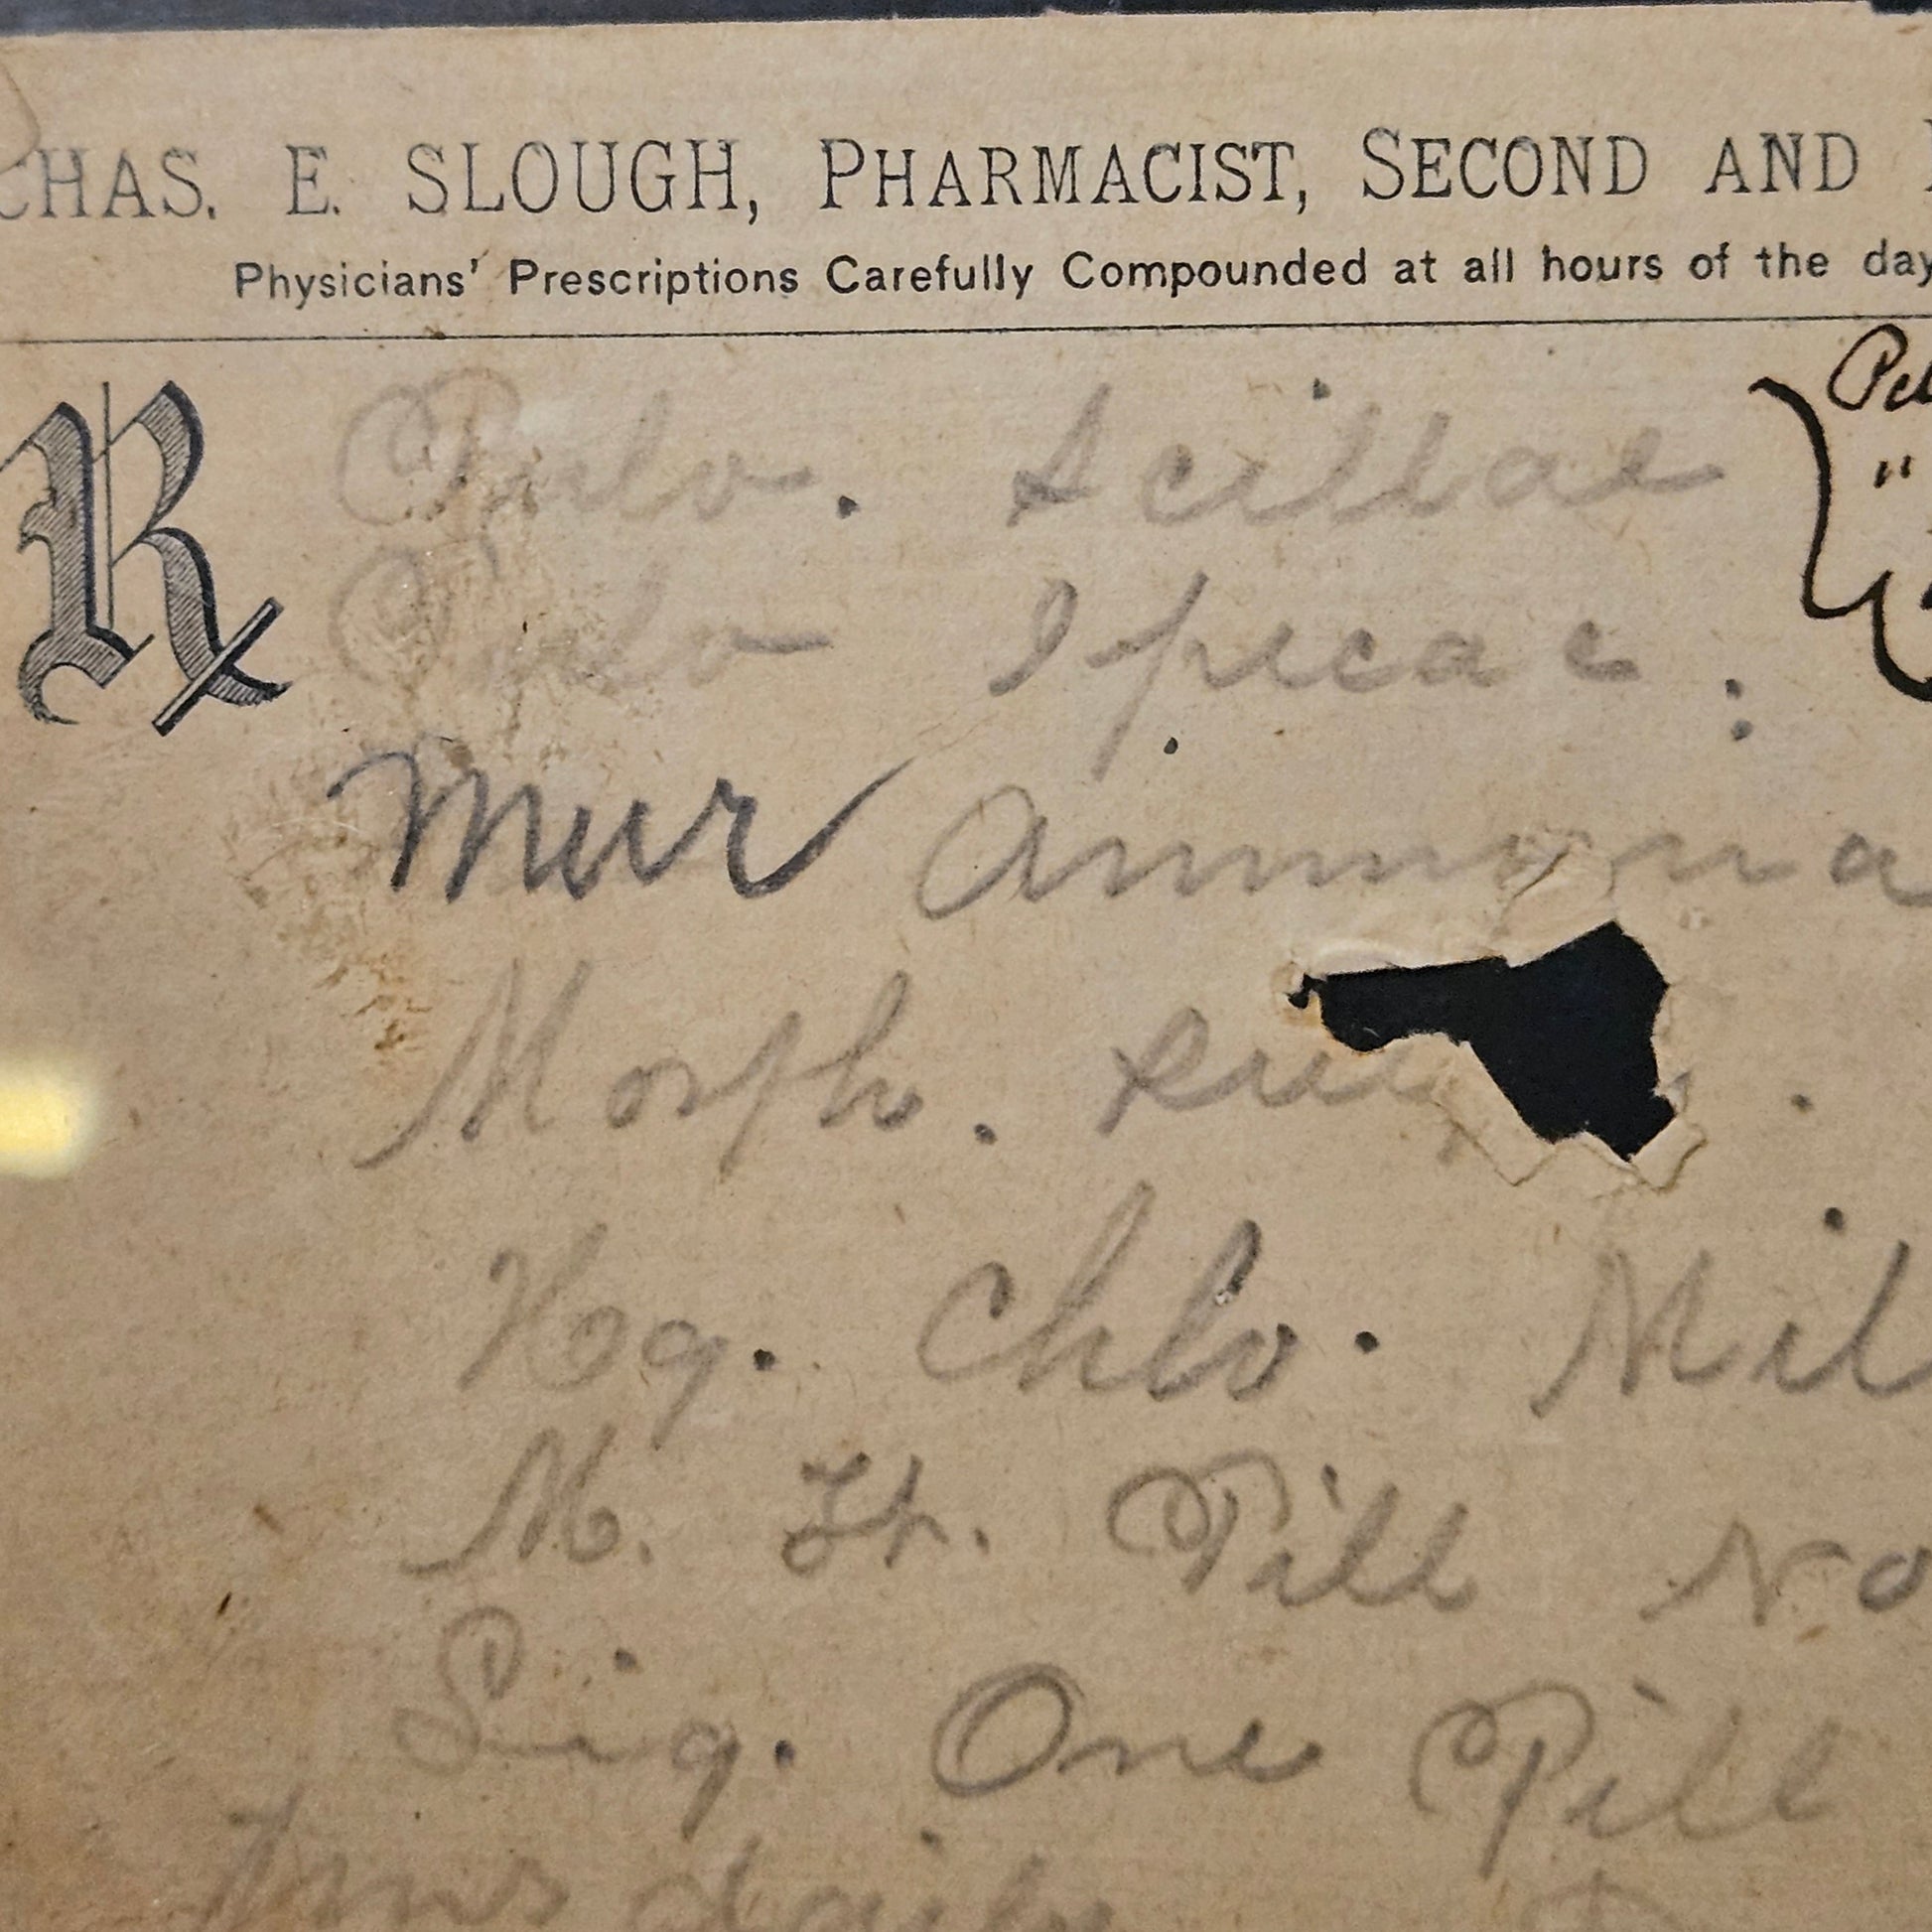 CHAS. E. SLOUGH, PHARMACIST, SECOND AND
Physicians' Prescriptions Carefully Compounded at all hours of the day
℞ Pulv. Scillae
Pulv Ipecac.
Mur Ammonia
Morph.
Hyg. Chlo. Mit
M. Ft. Pill No
Sig. One Pill
daily